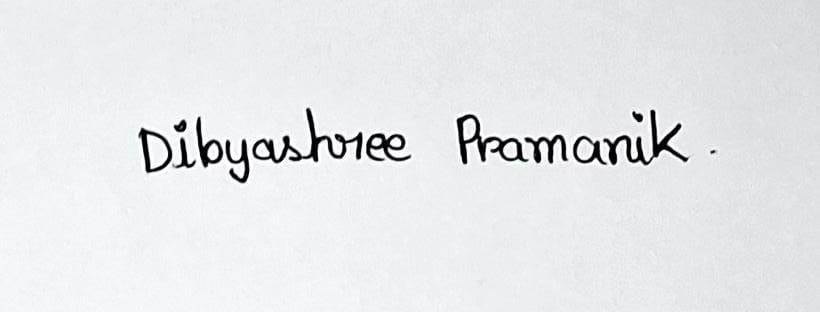 Dibyashree Pramanik.